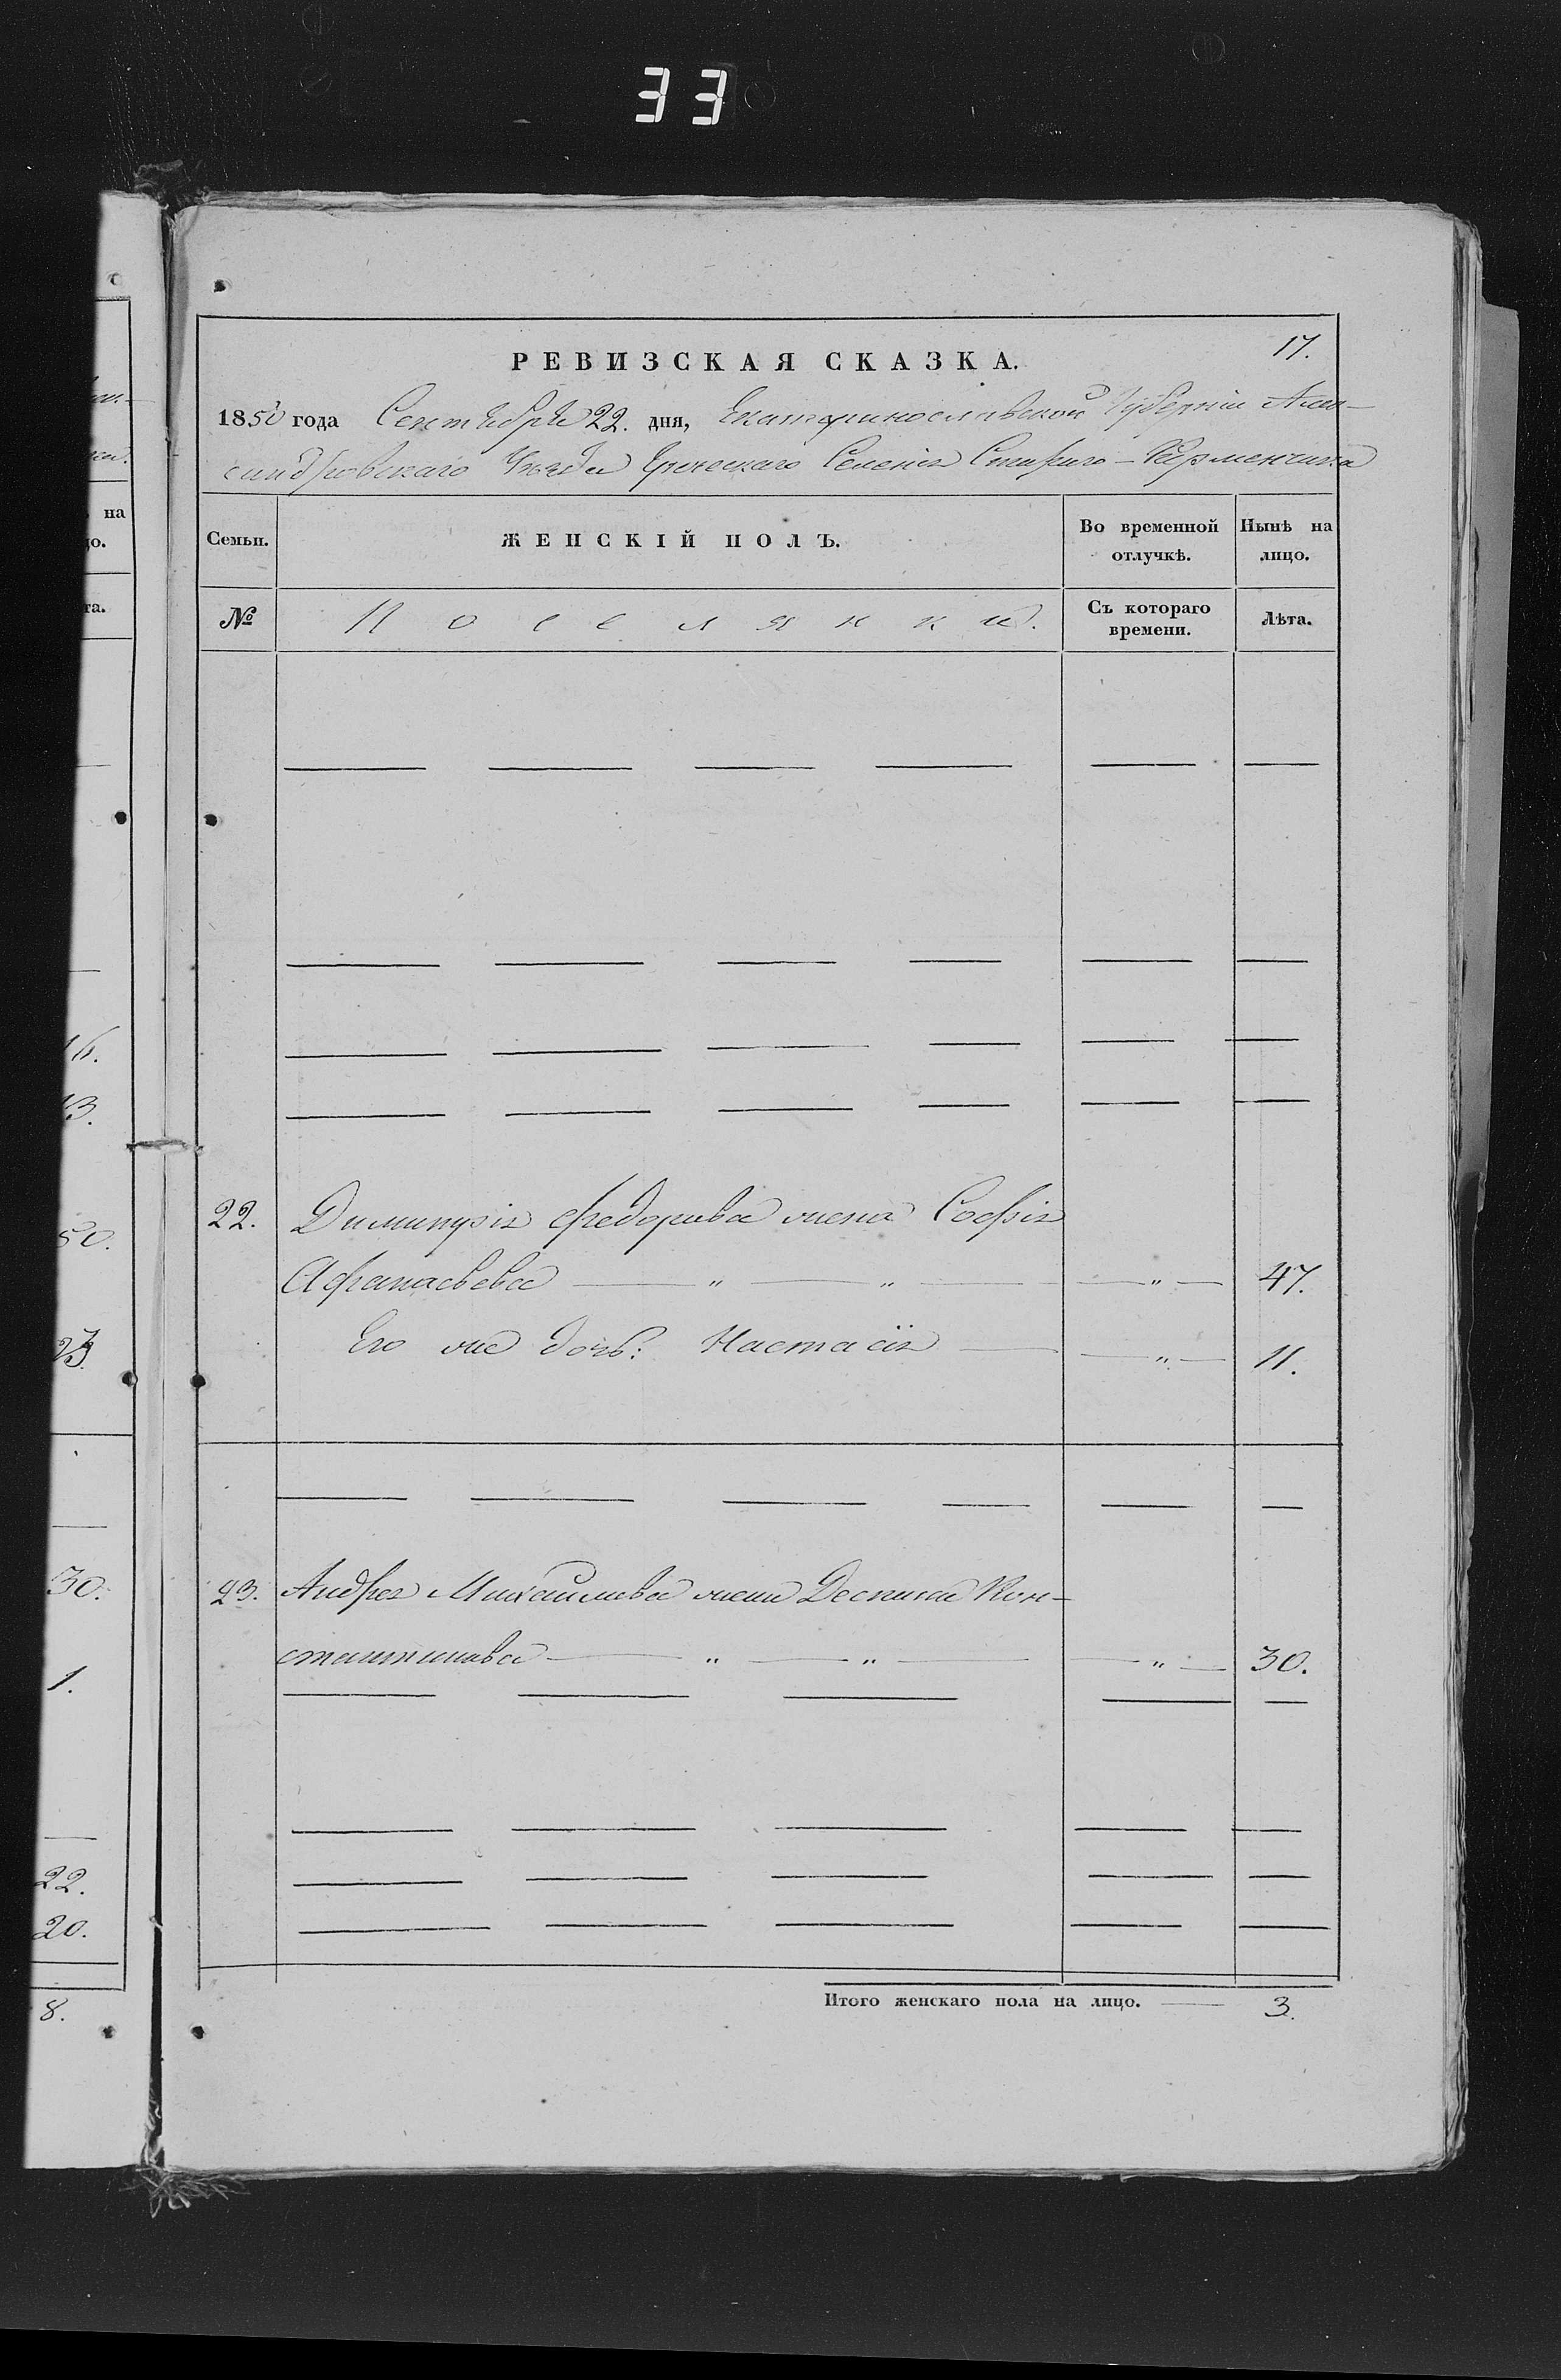 33
17.
РЕВИЗСКАЯ СКАЗКА.
1850 года Сентября 22. дня, Екатеринославской Губерніи Алек-
сандровскаго Уѣзда Греческаго Селенія Стараго-Керменчика
Семьи. ЖЕНСКІЙ ПОЛЪ. Во временной отлучкѣ. Нынѣ на лицо.
№ Поселянки. Съ котораго времени. Лѣта.
22. Димитрія Федорова жена Софія
Афанасьева — „ — „ — — „ — 47.
Его же дочь: Настасія — — „ — 11.
23. Андрея Михайлова жена Деспина Кон-
стантинова — „ — „ — — „ — 30.
Итого женскаго пола на лицо. — 3.
на
го.
та.
16.
13.
50.
23.
30.
1.
22.
20.
8.